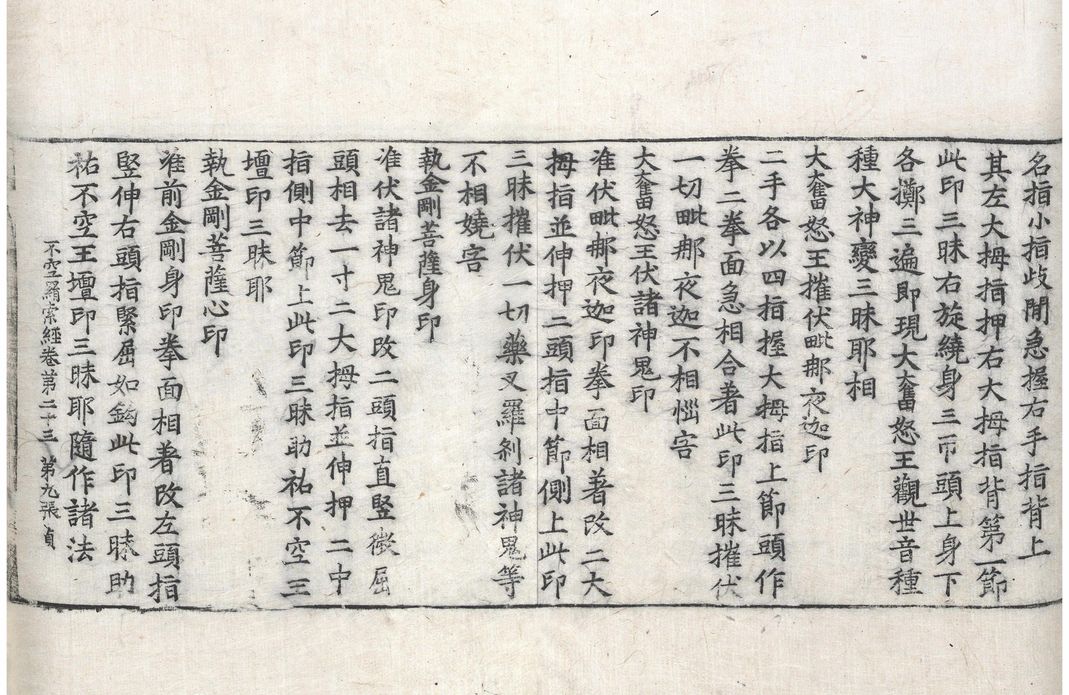 名指小指歧閒急握右手指背上
其左大拇指押右大拇指背第一節
此印三昧右旋繞身三帀頭上身下
各擲三遍即現大奮怒王觀世音種
種大神變三昧耶相
大奮怒王摧伏毗那夜迦印
二手各以四指握大拇指上節頭作
拳二拳面急相合著此印三昧摧伏
一切毗那夜迦不相惱害
大奮怒王伏諸神鬼印
准伏毗那夜迦印拳面相著改二大
拇指並伸押二頭指中節側上此印
三昧摧伏一切藥叉羅刹諸神鬼等
不相嬈害
執金剛菩薩身印
准伏諸神鬼印改二頭指直豎微屈
頭相去一寸二大拇指並伸押二中
指側中節上此印三昧助祐不空三
壇印三昧耶
執金剛菩薩心印
准前金剛身印拳面相著改左頭指
豎伸右頭指緊屈如鉤此印三昧助
祐不空王壇印三昧耶隨作諸法
不空羂索經卷第二十三 第九張 貞